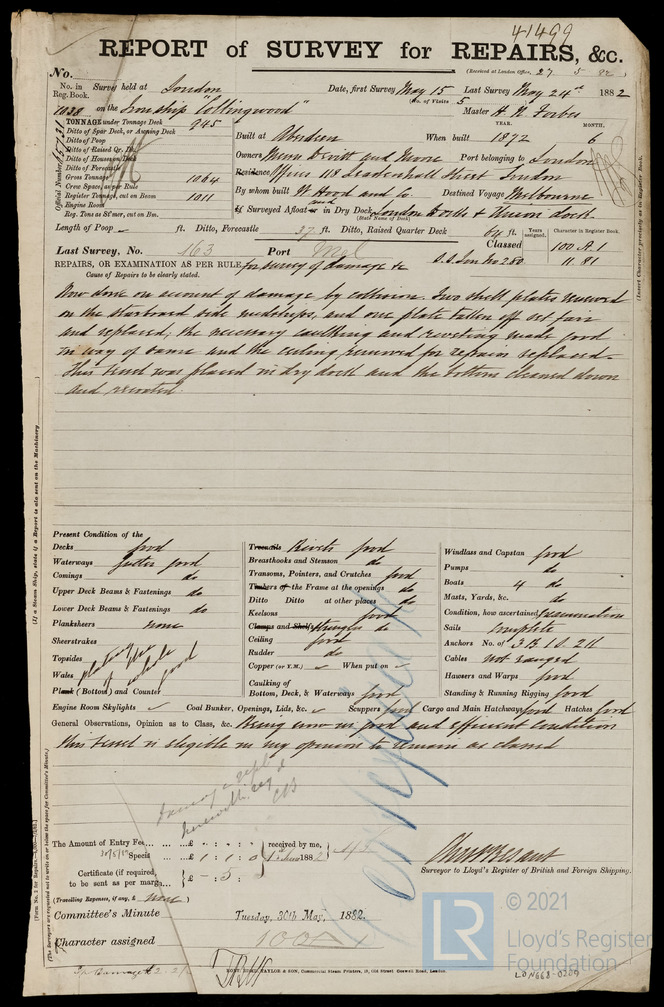 41499
REPORT of SURVEY for REPAIRS, &c.
(Received at London Office, 27 5 82)
No.
No. in Reg. Book. Survey held at London Date, first Survey May 15 Last Survey May 24th 1882
(No. of Visits 5
1038 on the Ironship "Collingwood" Master H. N. Forbes
TONNAGE under Tonnage Deck 945
Ditto of Spar Deck, or Awning Deck
Ditto of Poop
Ditto of Raised Qr. Dk.
Ditto of Houses on Deck
Ditto of Forecastle
Gross Tonnage 1064
Crew Space, as per Rule
Register Tonnage, cut on Beam 1011
Engine Room
Reg. Tons as St'mer, cut on Bm.
Official Number
YEAR. MONTH.
Built at Aberdeen When built 1872 6
Owners Messrs Devitt and Moore Port belonging to London
Residence Offices 118 Leadenhall Street London
By whom built W Hood and Co. Destined Voyage Melbourne
If Surveyed Afloat or in Dry Dock London Docks & Union dock
(State Name of Dock)
(Insert Character precisely as in Register Book.
Length of Poop ft. Ditto, Forecastle 37 ft. Ditto, Raised Quarter Deck 64 ft.
Years assigned. Character in Register Book.
Last Survey, No. 163 Port Mel Classed 100 A.1
REPAIRS, OR EXAMINATION AS PER RULE, for survey of damage &c S.S. Lon No 2.80 11.81
Cause of Repairs to be clearly stated.
Now done on account of damage by collision. Two shell plates renewed
on the starboard side midships, and one plate taken off set fair
and replaced, the necessary caulking and rivetting made good
in way of same and the ceiling removed for repairs replaced.
This vessel was placed in dry dock and the bottom cleaned down
and recoated.
(If a Steam Ship, state if a Report is also sent on the Machinery
Present Condition of the
Decks good
Waterways Gutter good
Comings do
Upper Deck Beams & Fastenings do
Lower Deck Beams & Fastenings do
Planksheers none
Sheerstrakes
Topsides
Wales
Plank (Bottom) and Counter
plating
of whole good
Treenails Rivets good
Breasthooks and Stemson do
Transoms, Pointers, and Crutches good
Timbers of the Frame at the openings do
Ditto Ditto at other places do
Keelsons good
Clamps and Shelf Stringers do
Ceiling good
Rudder do
Copper (or Y.M.) When put on
Caulking of
Bottom, Deck, & Waterways good
Windlass and Capstan good
Pumps do
Boats 4 do
Masts, Yards, &c. do
Condition, how ascertained Examination
Sails Complete
Anchors No. of 3 B. 1 S. 2 K
Cables not ranged
Hawsers and Warps good
Standing & Running Rigging good
Engine Room Skylights Coal Bunker, Openings, Lids, &c. Scuppers good Cargo and Main Hatchways good Hatches good
General Observations, Opinion as to Class, &c. Being now in good and efficient condition
this vessel is eligible in my opinion to remain as classed
The Amount of Entry Fee £
Special £ 1 : 1 : 0
received by me,
1st June 1882
Certificate (if required, to be sent as per margin £ - : 5 :
(Travelling Expenses, if any, £ none)
Surveyor to Lloyd's Register of British and Foreign Shipping.
Committee's Minute Tuesday, 30th May, 1882.
Character assigned 100A1
(Form No. 1 for Repairs
(The Surveyors are requested not to write on or below the space for Committee's Minute.)
© 2021
LR
Lloyd's Register
Foundation
LON668-0209